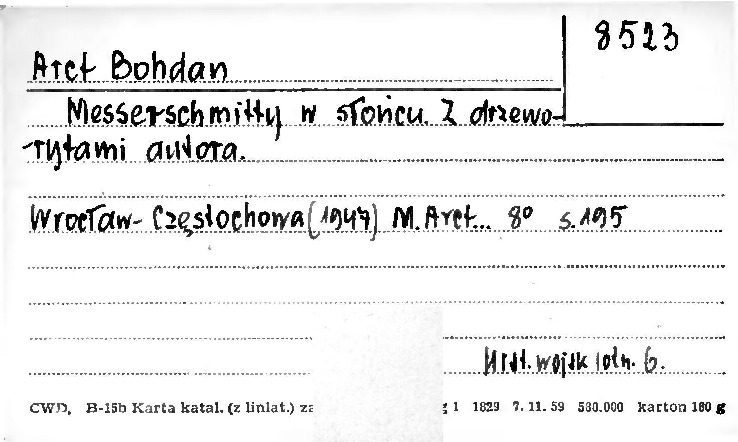 8523
Arct Bohdan
Messerschmitty w słońcu. Z drzewo-
-rytami autora.
Wrocław-Częstochowa (1947) M. Arct... 8° s. 195
Hist. wojsk lotn. 6.
CWD, B-15b Karta katal. (z liniat.) za g 1 1829 7. 11. 59 530.000 karton 180 g